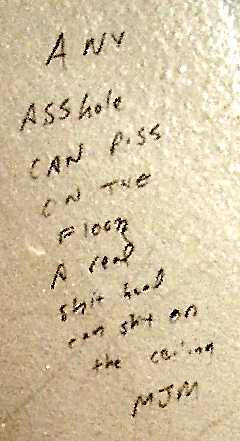 ANY
ASShole
CAN PISS
ON THE
Floor
A real
shit head
can shit on
the ceiling
MJM